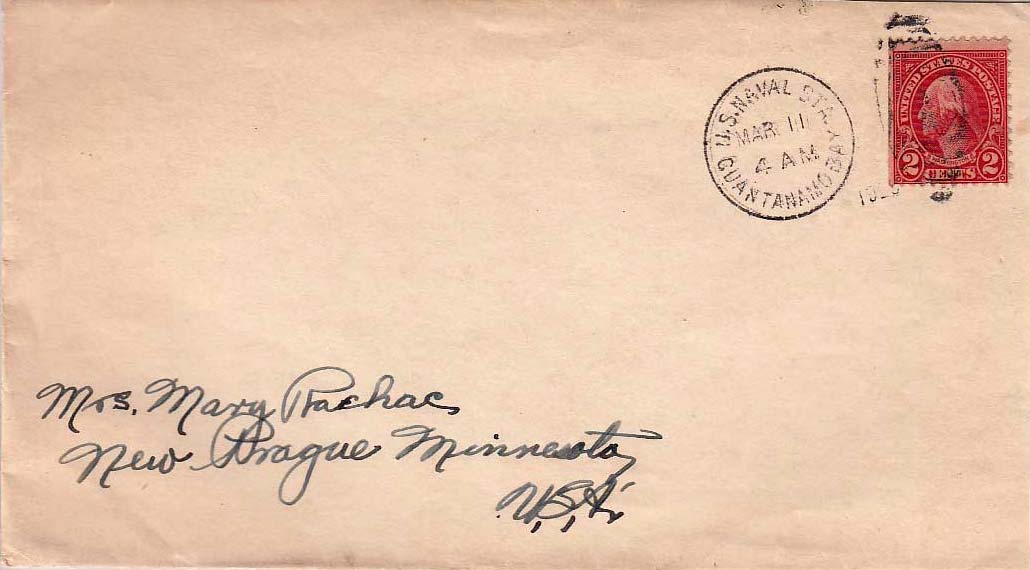 U.S. NAVAL STA.
MAR 11
4 AM
GUANTANAMO BAY
UNITED STATES POSTAGE
WASHINGTON
2 CENTS 2
Mrs. Mary Rachac
New Prague Minnesota,
U.S.A.